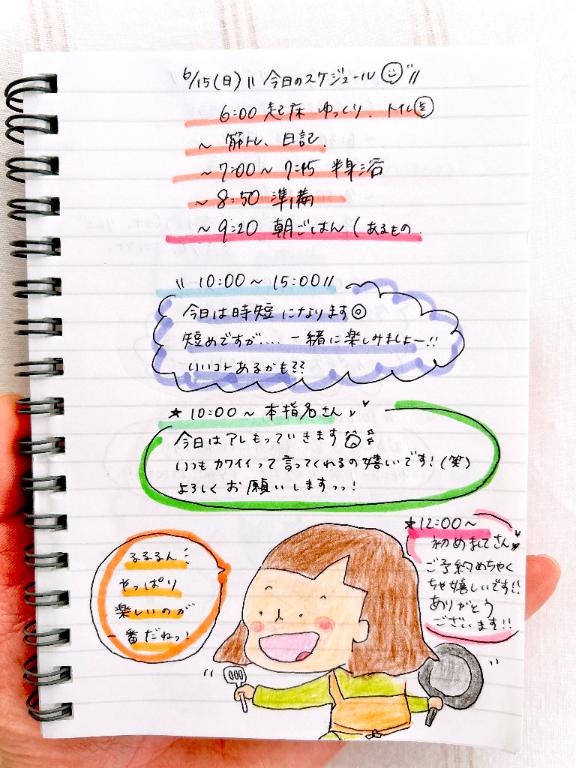 6/15(日) 〃今日のスケジュール〃
6:00 起床 ゆっくり、トイレ
〜 筋トレ、日記
〜7:00〜7:45 半身浴
〜8:50 準備
〜9:20 朝ごはん(あるもの
〃10:00〜15:00〃
今日は時短になります◎
短めですが.... 一緒に楽しみましょー!!
いいコトあるかも??
★10:00〜本指名さん
今日はアレもっていきます
いつもカワイイって言ってくれるの嬉しいです!(笑)
よろしくお願いしますっっ!
★12:00〜
初めましてさん
ご予約めちゃく
ちゃ嬉しいです!!
ありがとう
ございます!!
るるるん♪
やっぱり
楽しいのが
一番だねっ!